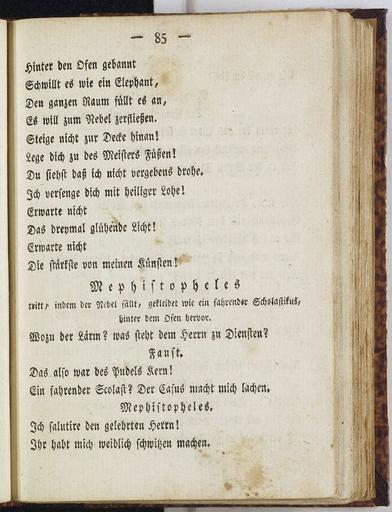 — 85 —
Hinter den Ofen gebannt
Schwillt es wie ein Elephant,
Den ganzen Raum füllt es an,
Es will zum Nebel zerfließen.
Steige nicht zur Decke hinan!
Lege dich zu des Meisters Füßen!
Du siehst daß ich nicht vergebens drohe.
Ich versenge dich mit heiliger Lohe!
Erwarte nicht
Das dreymal glühende Licht!
Erwarte nicht
Die stärkste von meinen Künsten!
Mephistopheles
tritt, indem der Nebel fällt, gekleidet wie ein fahrender Scholastikus,
hinter dem Ofen hervor.
Wozu der Lärm? was steht dem Herrn zu Diensten?
Faust.
Das also war des Pudels Kern!
Ein fahrender Scolast? Der Casus macht mich lachen.
Mephistopheles.
Ich salutire den gelehrten Herrn!
Ihr habt mich weidlich schwitzen machen.